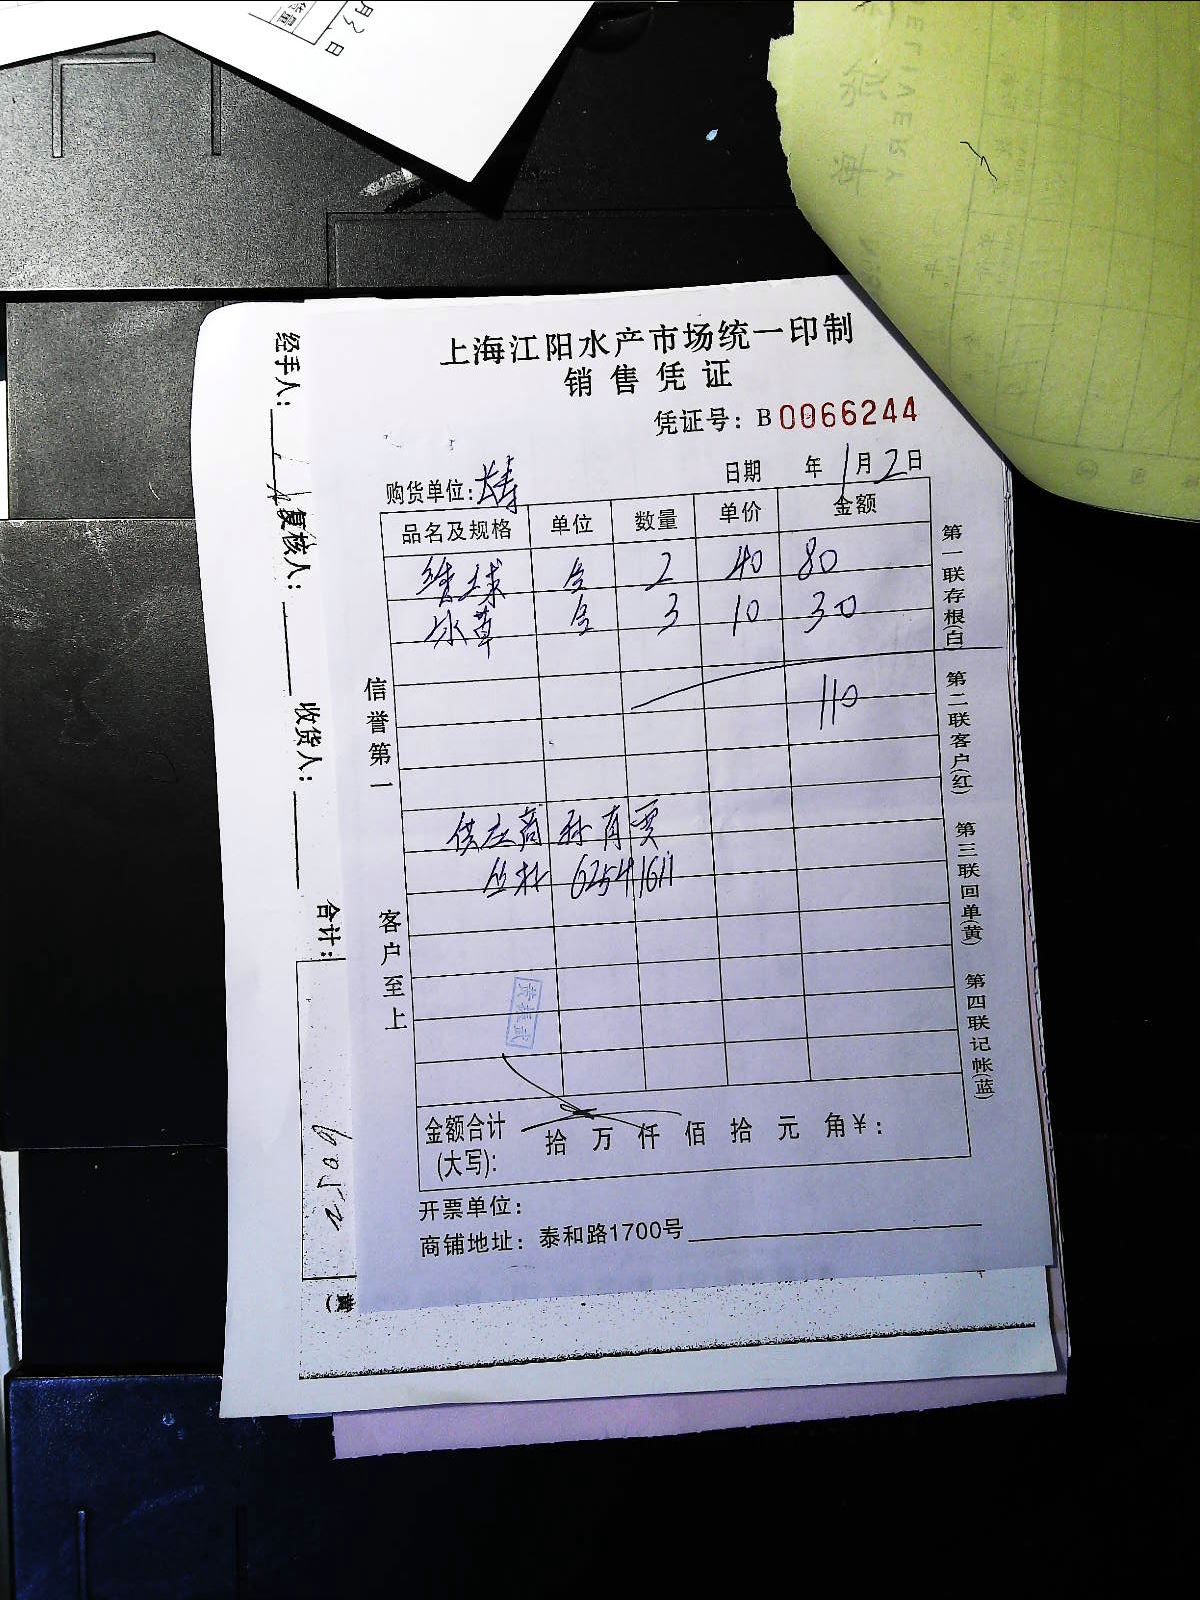 月3日
DELIVERY
经手人：
复核人：
收货人：
合计：
上海江阳水产市场统一印制
销售凭证
凭证号：B0066244
购货单位：长寿 日期 年1月2日
品名及规格 单位 数量 单价 金额
合 2 40 80
冰草 合 3 10 30
110
供应商 孙有贾
62541611
信誉第一
客户至上
第一联存根(白)
第二联客户(红)
第三联回单(黄)
第四联记帐(蓝)
金额合计(大写)： 拾 万 仟 佰 拾 元 角 ¥：
开票单位：
商铺地址：泰和路1700号